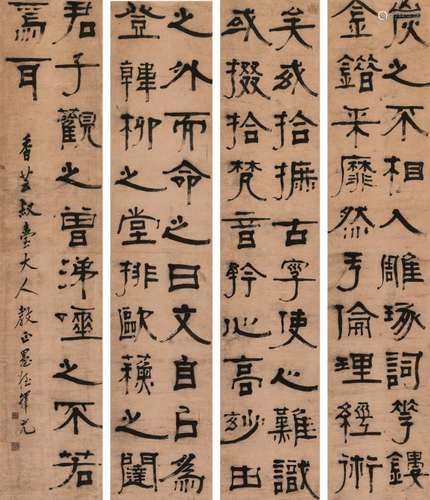 炭之不相入雕琢詞華鏤
金錯采靡然于倫理經術
矣或拾摭古字使人難識
或掇拾梵音矜心高妙由
之外而命之曰文自以為
登韓柳之堂排歐蘇之闥
君子觀之曾涕唾之不若
焉耳
香芸叔臺大人教正愚侄